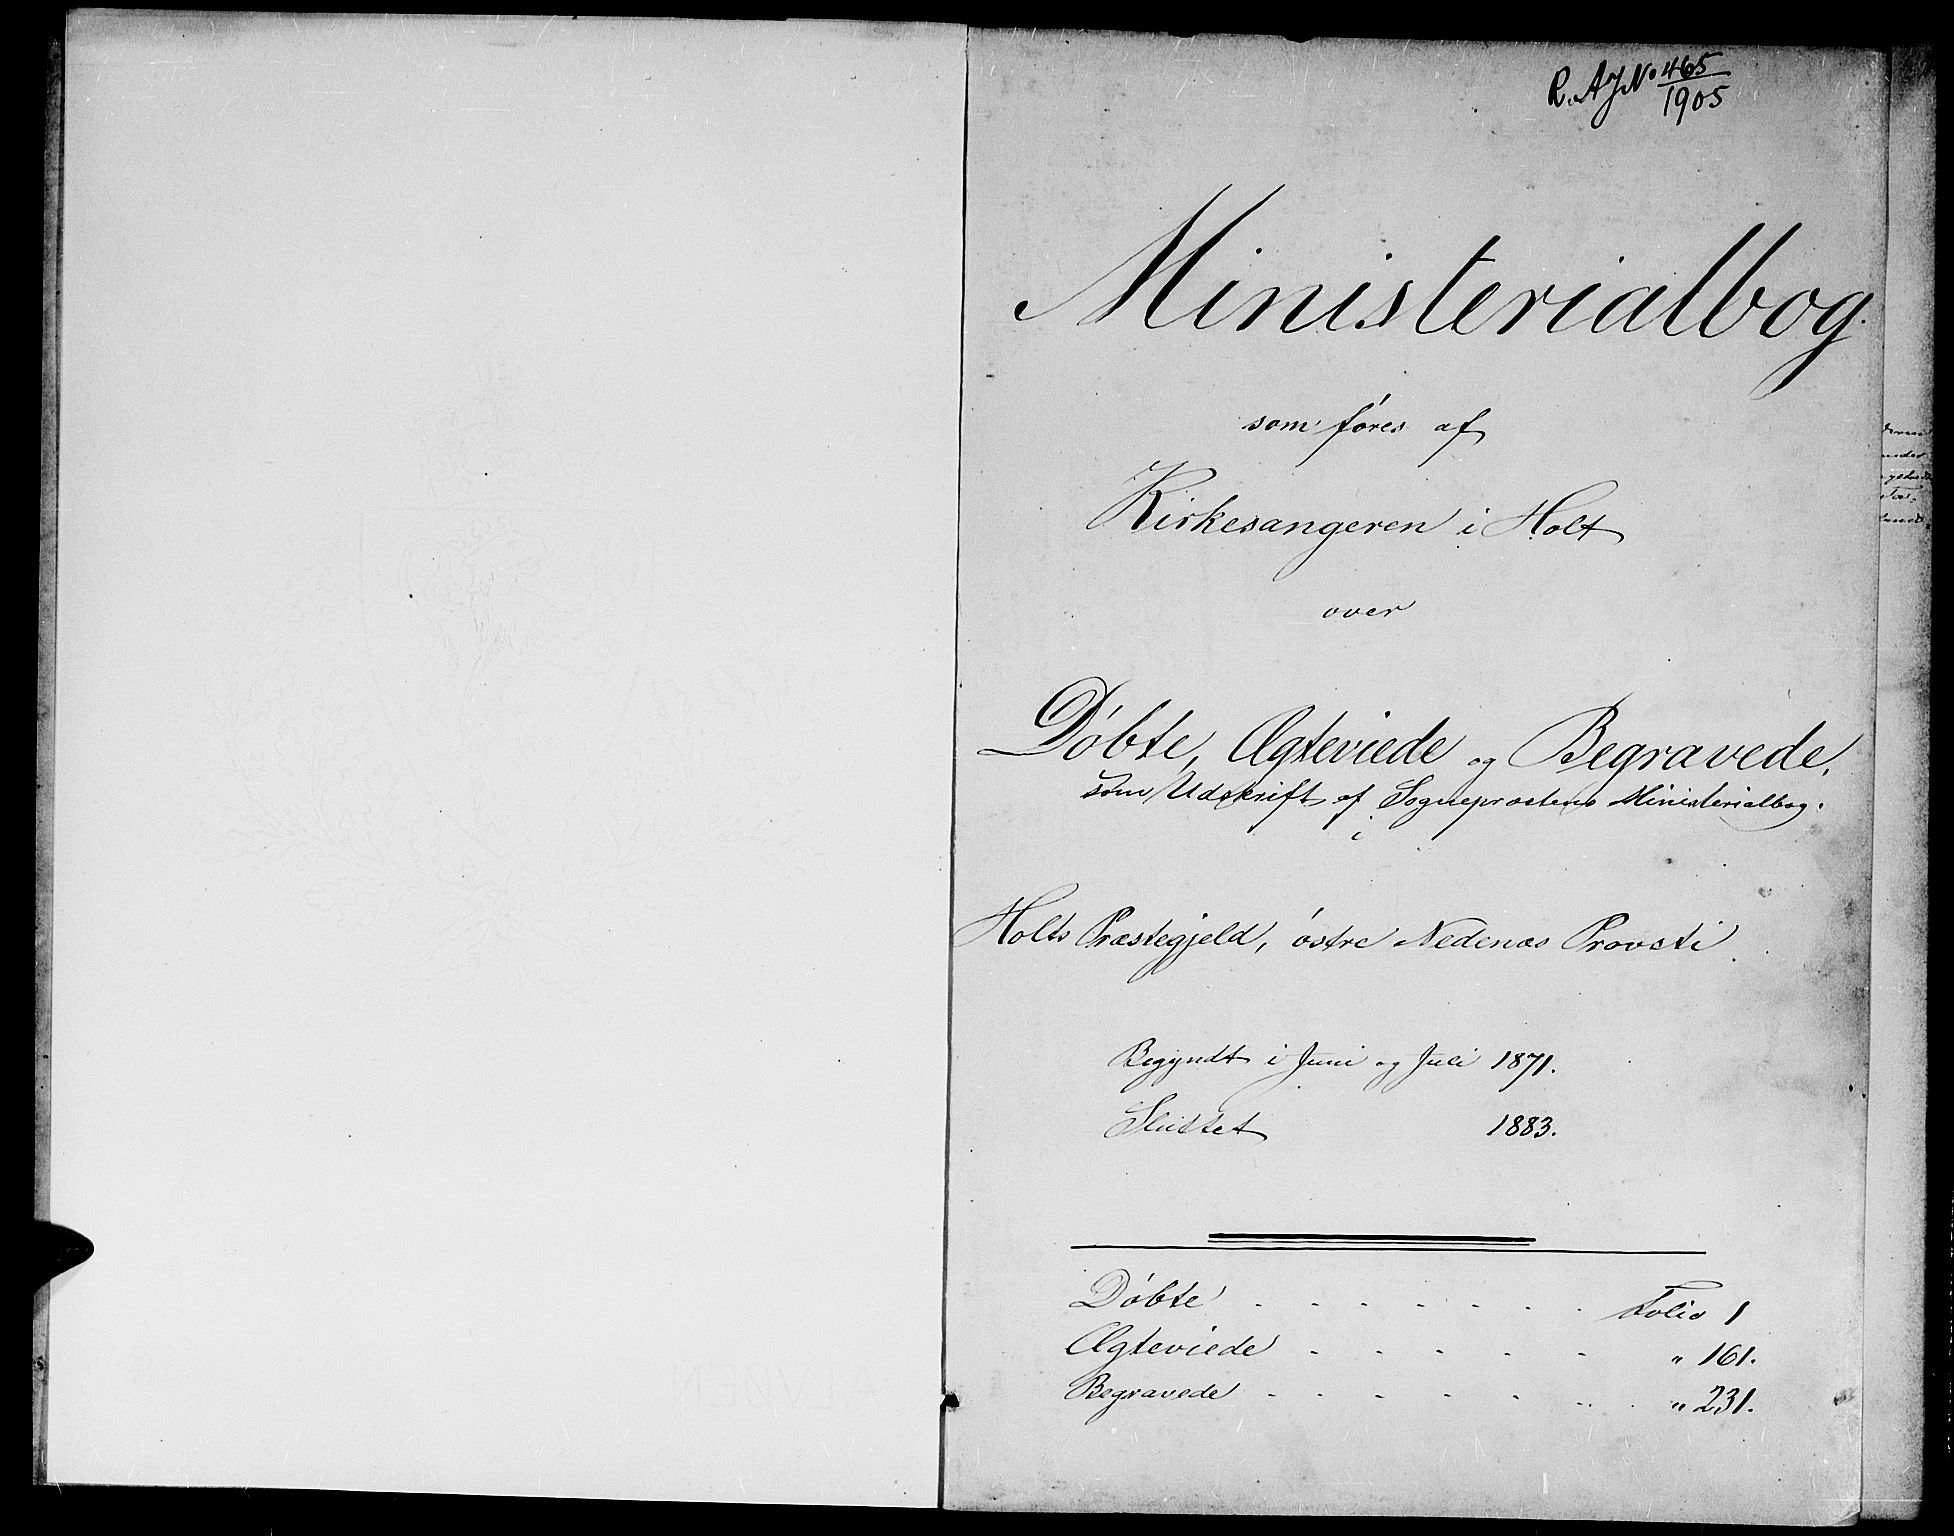 R.A J.No 465/1905
Ministerialbog
som føres af
Kirkesangeren i Holt
over
Døbte, Ægteviede og Begravede,
som Udskrift af Sognepræstens Ministerialbog.
i
Holts Præstegjeld, østre Nedenæs Provsti.
Begyndt i Juni og Juli 1871.
Sluttet 1883.
Døbte . . . . . . . Folio 1
Ægteviede . . . . . " 161.
Begravede . . . . . . . " 231.